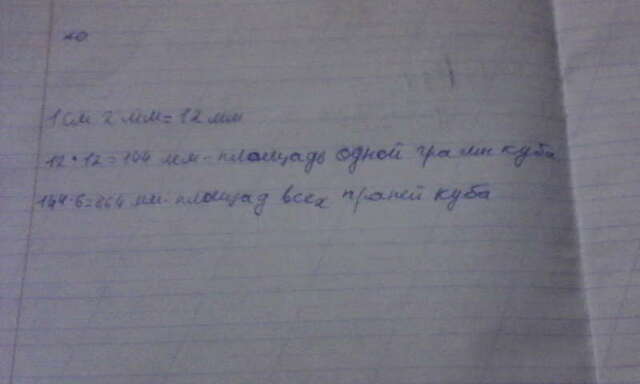 1 см 2 мм = 12 мм
12 • 12 = 144 мм - площадь одной грани куба
144 · 6 = 864 мм - площад всех граней куба